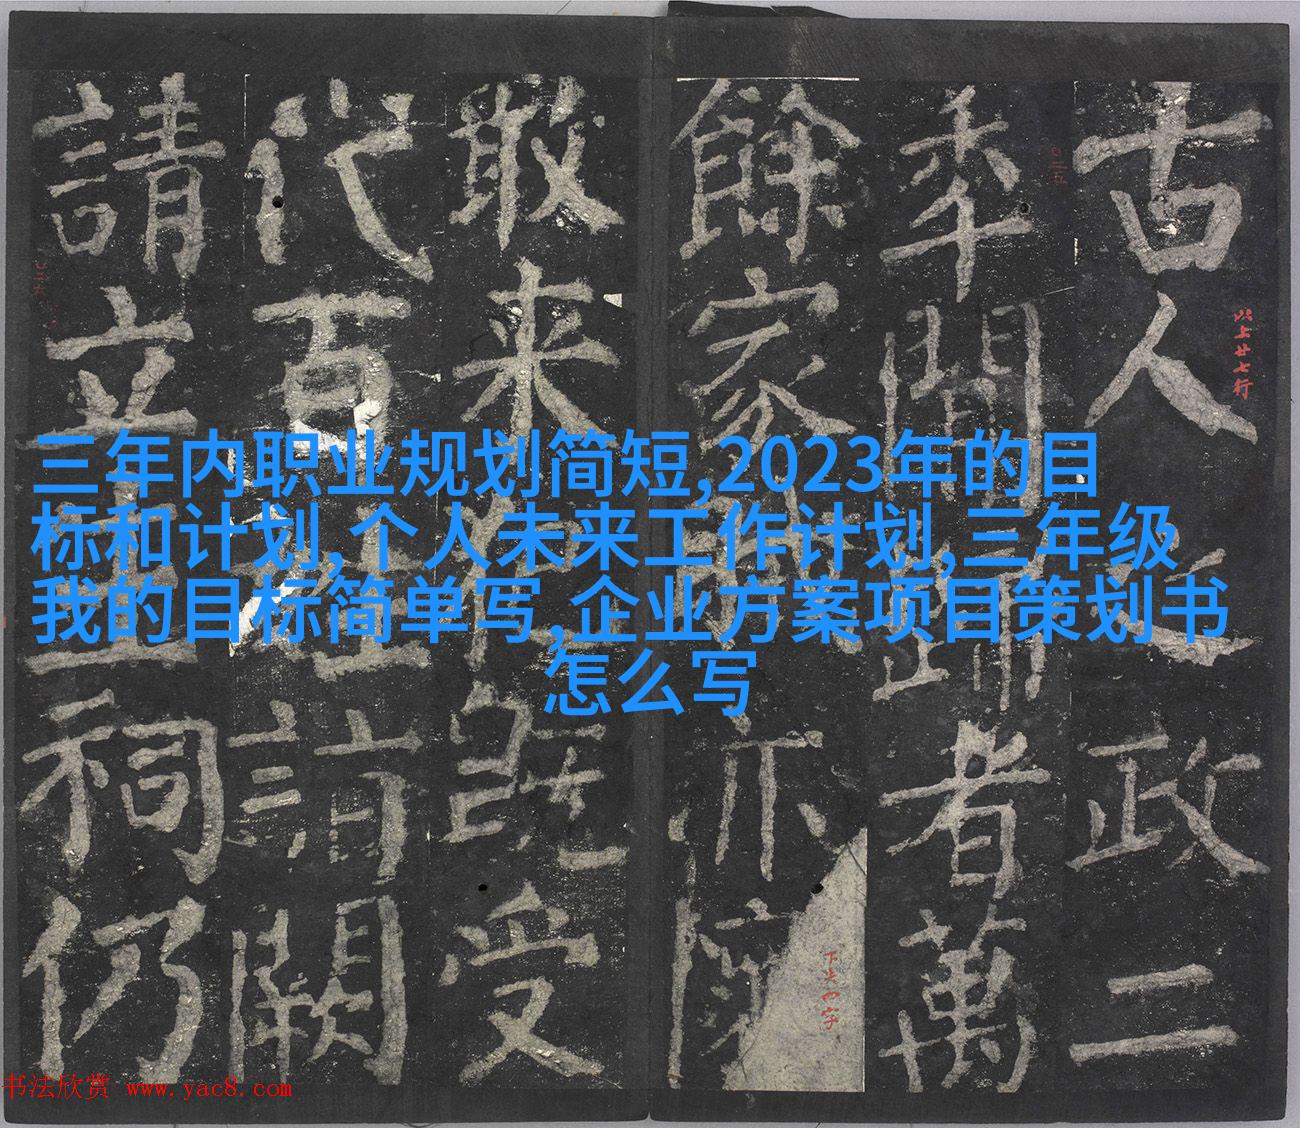 古人
政二
年間歸者萬
餘家
亦
敢来
既受
代百姓詣闕
請立生祠仍
以上廿七行
三年内职业规划简短,2023年的目
标和计划,个人未来工作计划,三年级
我的目标简单写,企业方案项目策划书
怎么写
书法欣赏 www.yac8.com